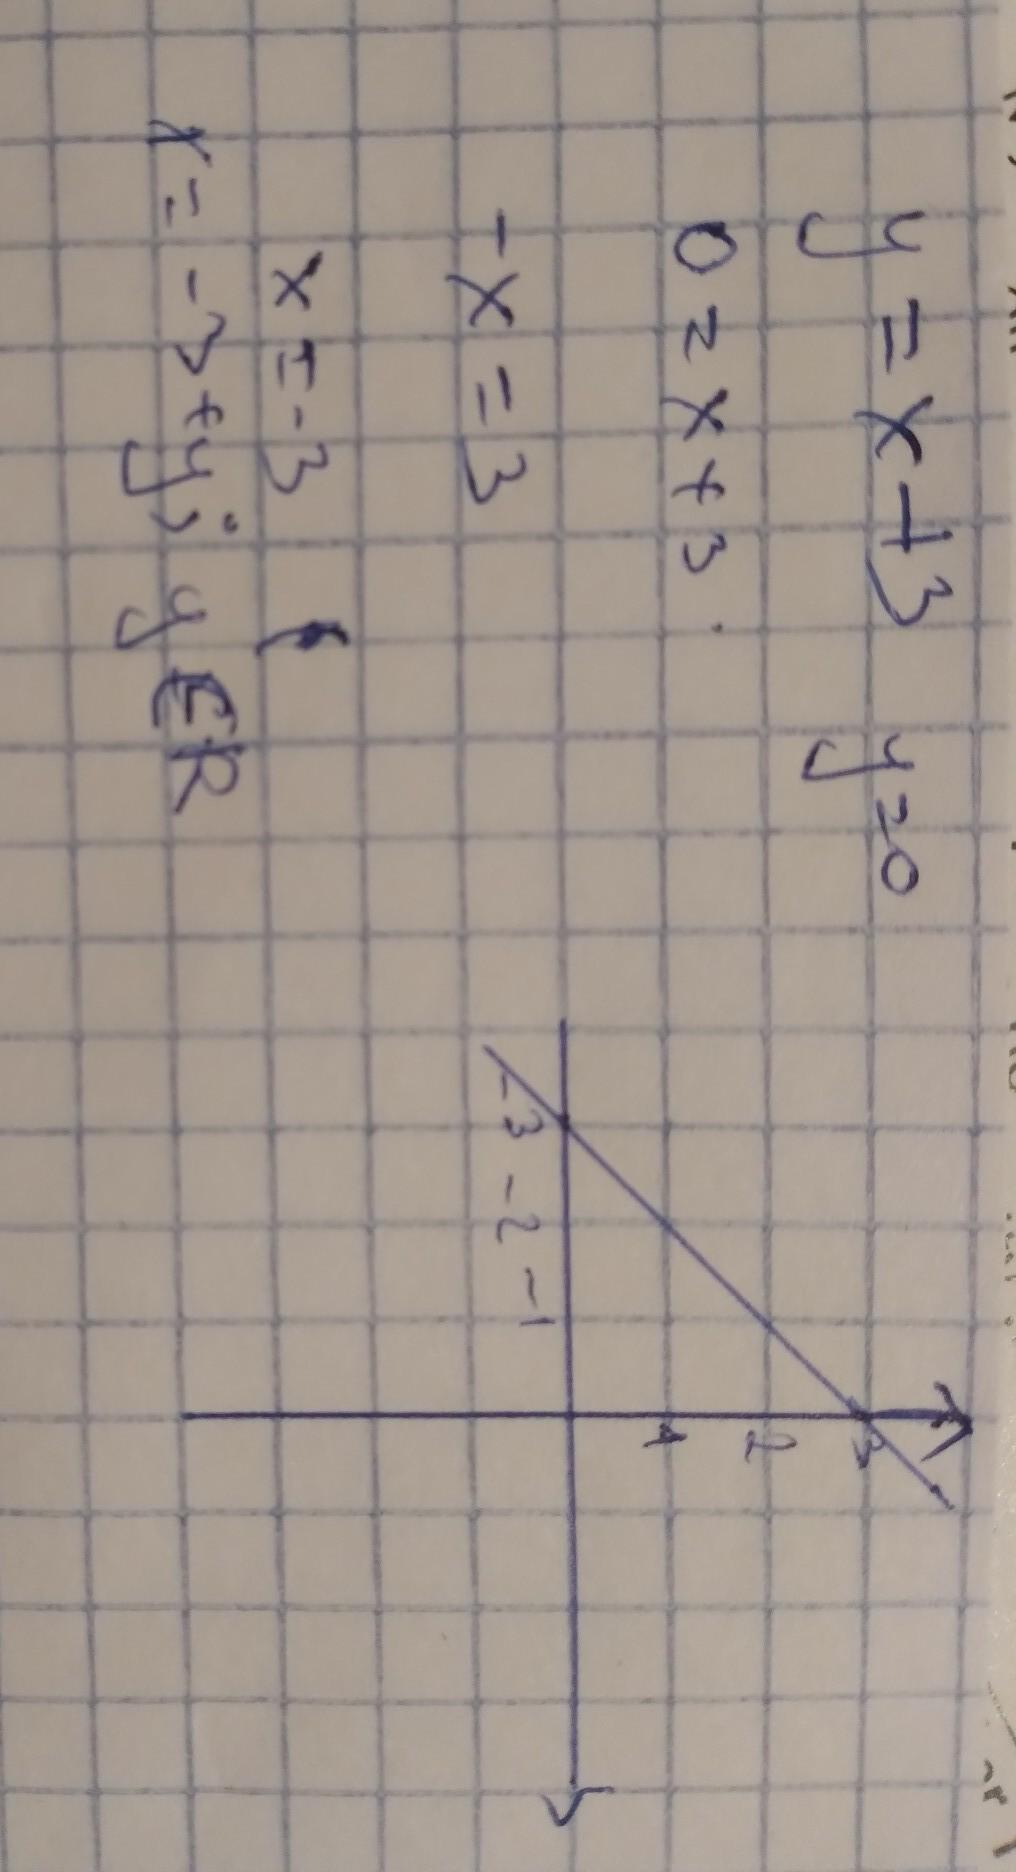 y = x + 3 y = 0
0 = x + 3
-x = 3
x = -3
x = -3 + y; y ∈ R
3
2
1
-3 -2 -1